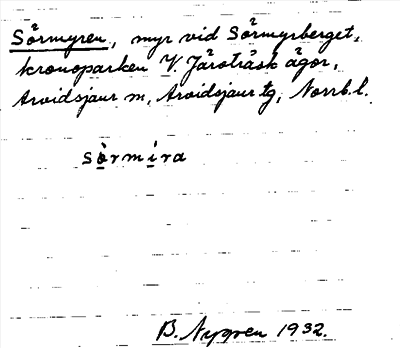 Sörmyren, myr vid Sörmyrberget,
kronoparken V. Järvträsk ägor,
Arvidsjaur sn, Arvidsjaur tg, Norrb. l.
sörmira
B. Nygren 1932.